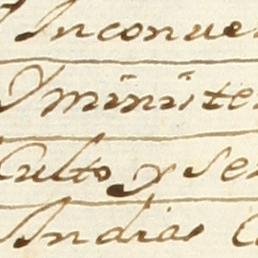 Inconve
Y miniite
Culto y Se
Indias